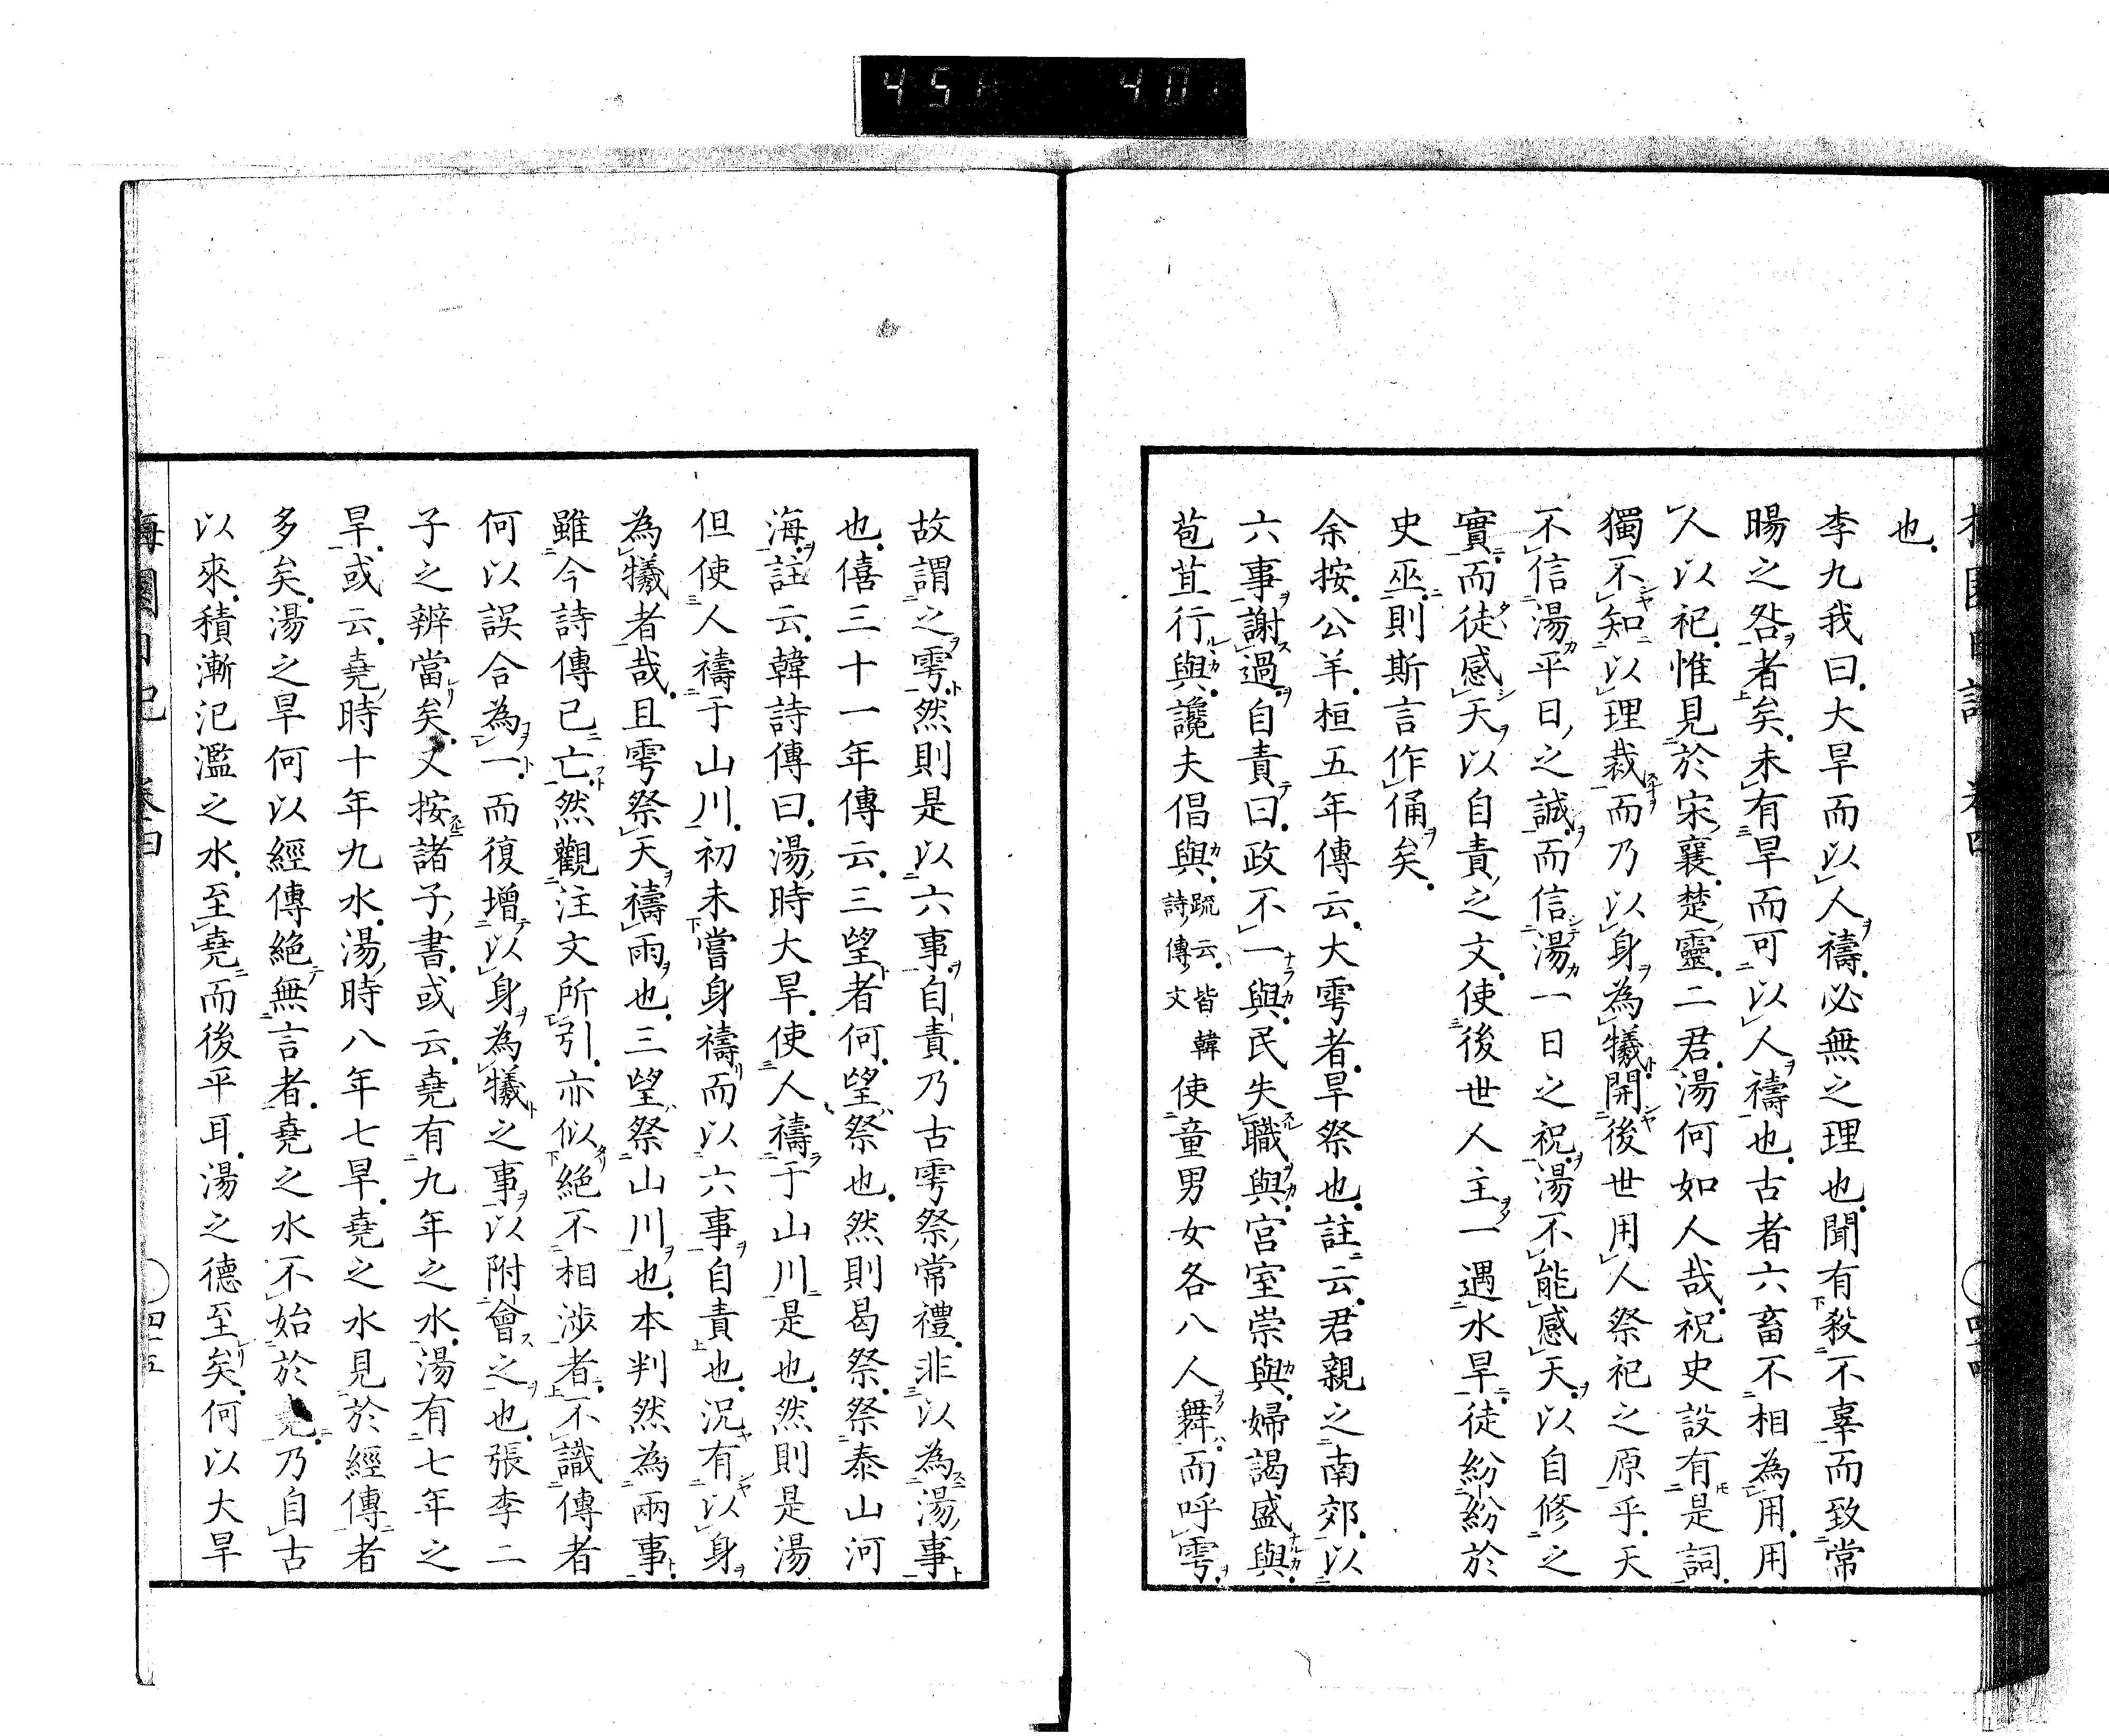 也
李九我曰大旱而以人禱必無之理也聞有殺不辜而致常
暘之咎者矣未有旱而可以人禱也古者六畜不相為用用
人以祀惟見於宋襄楚靈二君湯何如人哉祝史設有是詞
獨不知以理裁而乃以身為犧開後世用人祭祀之原乎天
不信湯平日之誠而信湯一日之祝湯不能感天以自修之
實而徒感天以自責之文使後世人主一遇水旱徒紛紛於
史巫則斯言作俑矣
余按公羊桓五年傳云大雩者旱祭也註云君親之南郊以
六事謝過自責曰政不一與民失職與宮室崇與婦謁盛與
苞苴行與讒夫倡與疏云皆韓詩傳文使童男女各八人舞而呼雩
故謂之雩然則是以六事自責乃古雩祭常禮非以為湯事
也僖三十一年傳云三望者何望祭也然則曷祭祭泰山河
海註云韓詩傳曰湯時大旱使人禱于山川是也然則是湯
但使人禱于山川初未嘗身禱而以六事自責也況有以身
為犧者哉且雩祭天禱雨也三望祭山川也本判然為兩事
雖今詩傳已亡然觀注文所引亦似絕不相涉者不識傳者
何以誤合為一而復增以身為犧之事以附會之也張李二
子之辨當矣又按諸子書或云堯有九年之水湯有七年之
旱或云堯時十年九水湯時八年七旱堯之水見於經傳者
多矣湯之旱何以經傳絕無言者堯之水不始於堯乃自古
以來積漸氾濫之水至堯而後平耳湯之德至矣何以大旱
卷四 四十五